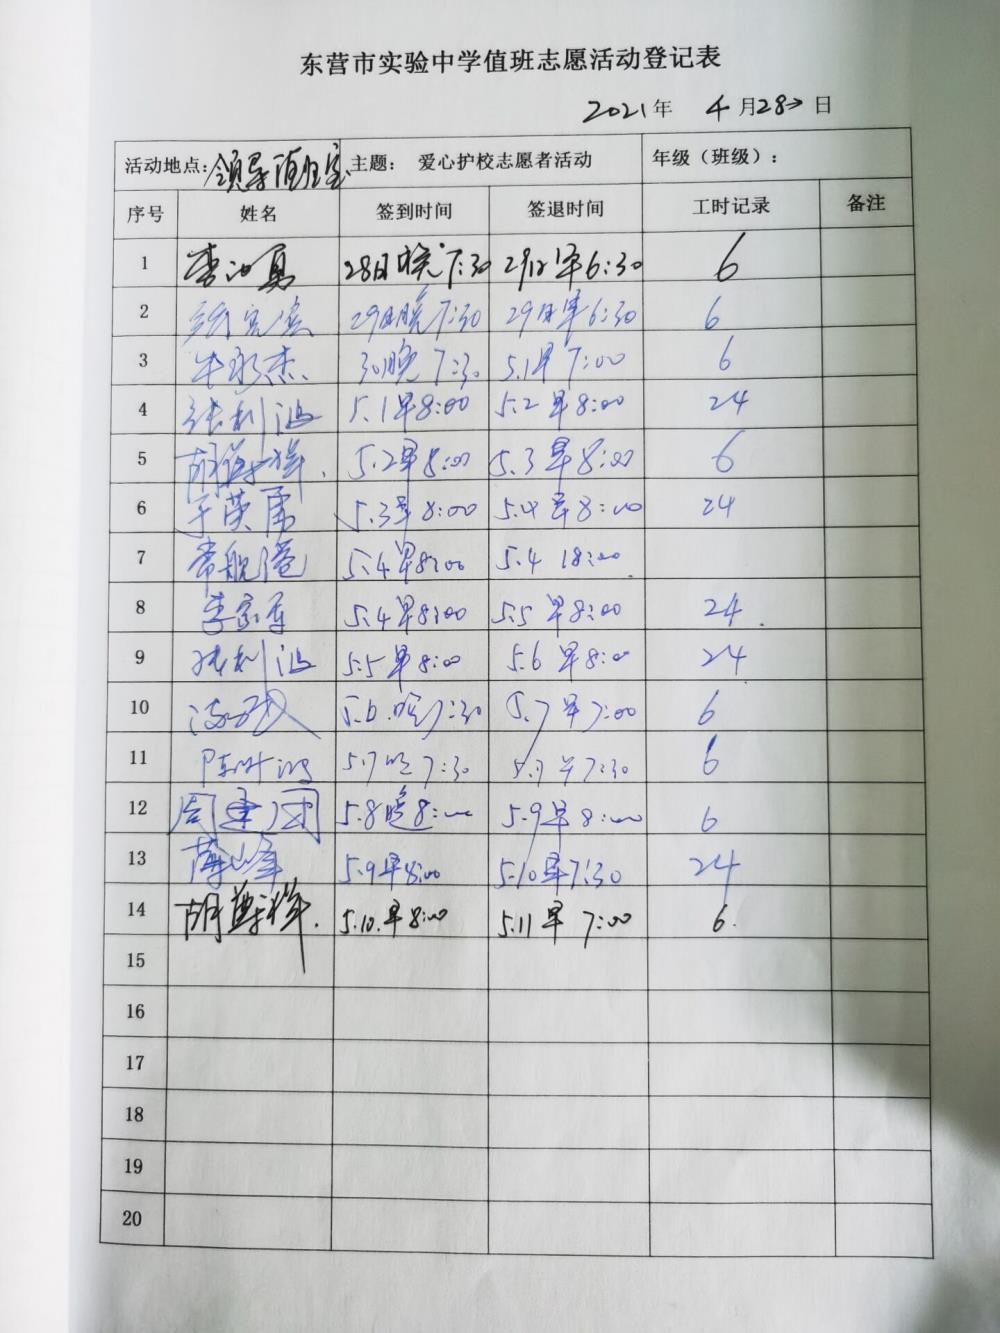 东营市实验中学值班志愿活动登记表
2021年 4月28日
活动地点:领导值班室 主题: 爱心护校志愿者活动 年级(班级):
序号 姓名 签到时间 签退时间 工时记录 备注
1 28日晚7:30 29日早6:30 6
2 29日晚7:30 29日早6:30 6
3 牛永杰 30晚7:30 5.1早7:00 6
4 张利鸿 5.1早8:00 5.2早8:00 24
5 胡尊祥. 5.2早8:00 5.3早8:00 6
6 于英虎 5.3早8:00 5.4早8:00 24
7 常舰港 5.4早8:00 5.4 18:00
8 李家军 5.4早8:00 5.5早8:00 24.
9 张利鸿 5.5早8:00 5.6早8:00 24
10 5.6.晚7:30 5.7早7:00 6
11 5.7晚7:30 早7:30 6
12 周建团 5.8晚8:00 5.9早8:00 6
13 薄山峰 5.9早8:00 5.10早7:30 24
14 胡尊祥. 5.10.早8:00 5.11早7:00 6.
15
16
17
18
19
20